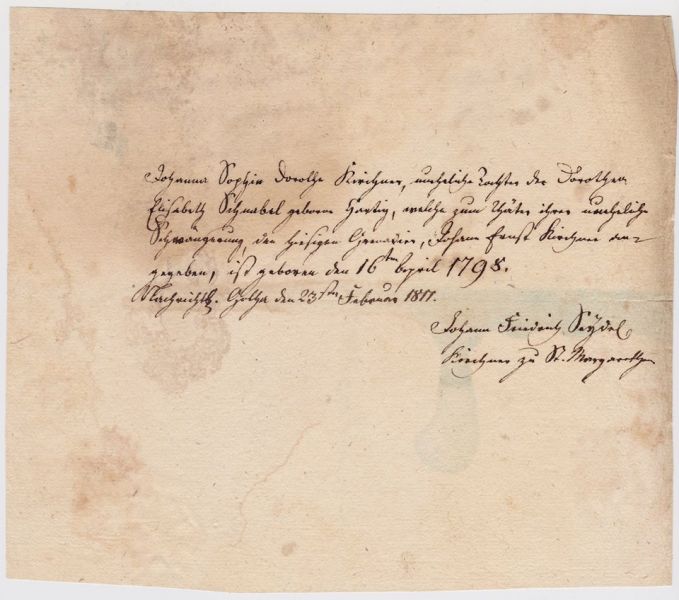 Johanna Sophia Dorothe Kirchner, uneheliche Tochter der Dorothea
Elisabeth Schnabel geborne Hartig, welche zum Thäter ihrer unehelich
Schwängerung, den hiesigen Grenadier, Johann Ernst Kirchner an-
gegeben, ist geboren den 16ten April 1798.
Nachrichtl. Gotha den 23sten Februar 1817.
Johann Friedrich Seydel
Kirchner zu St. Margarethen